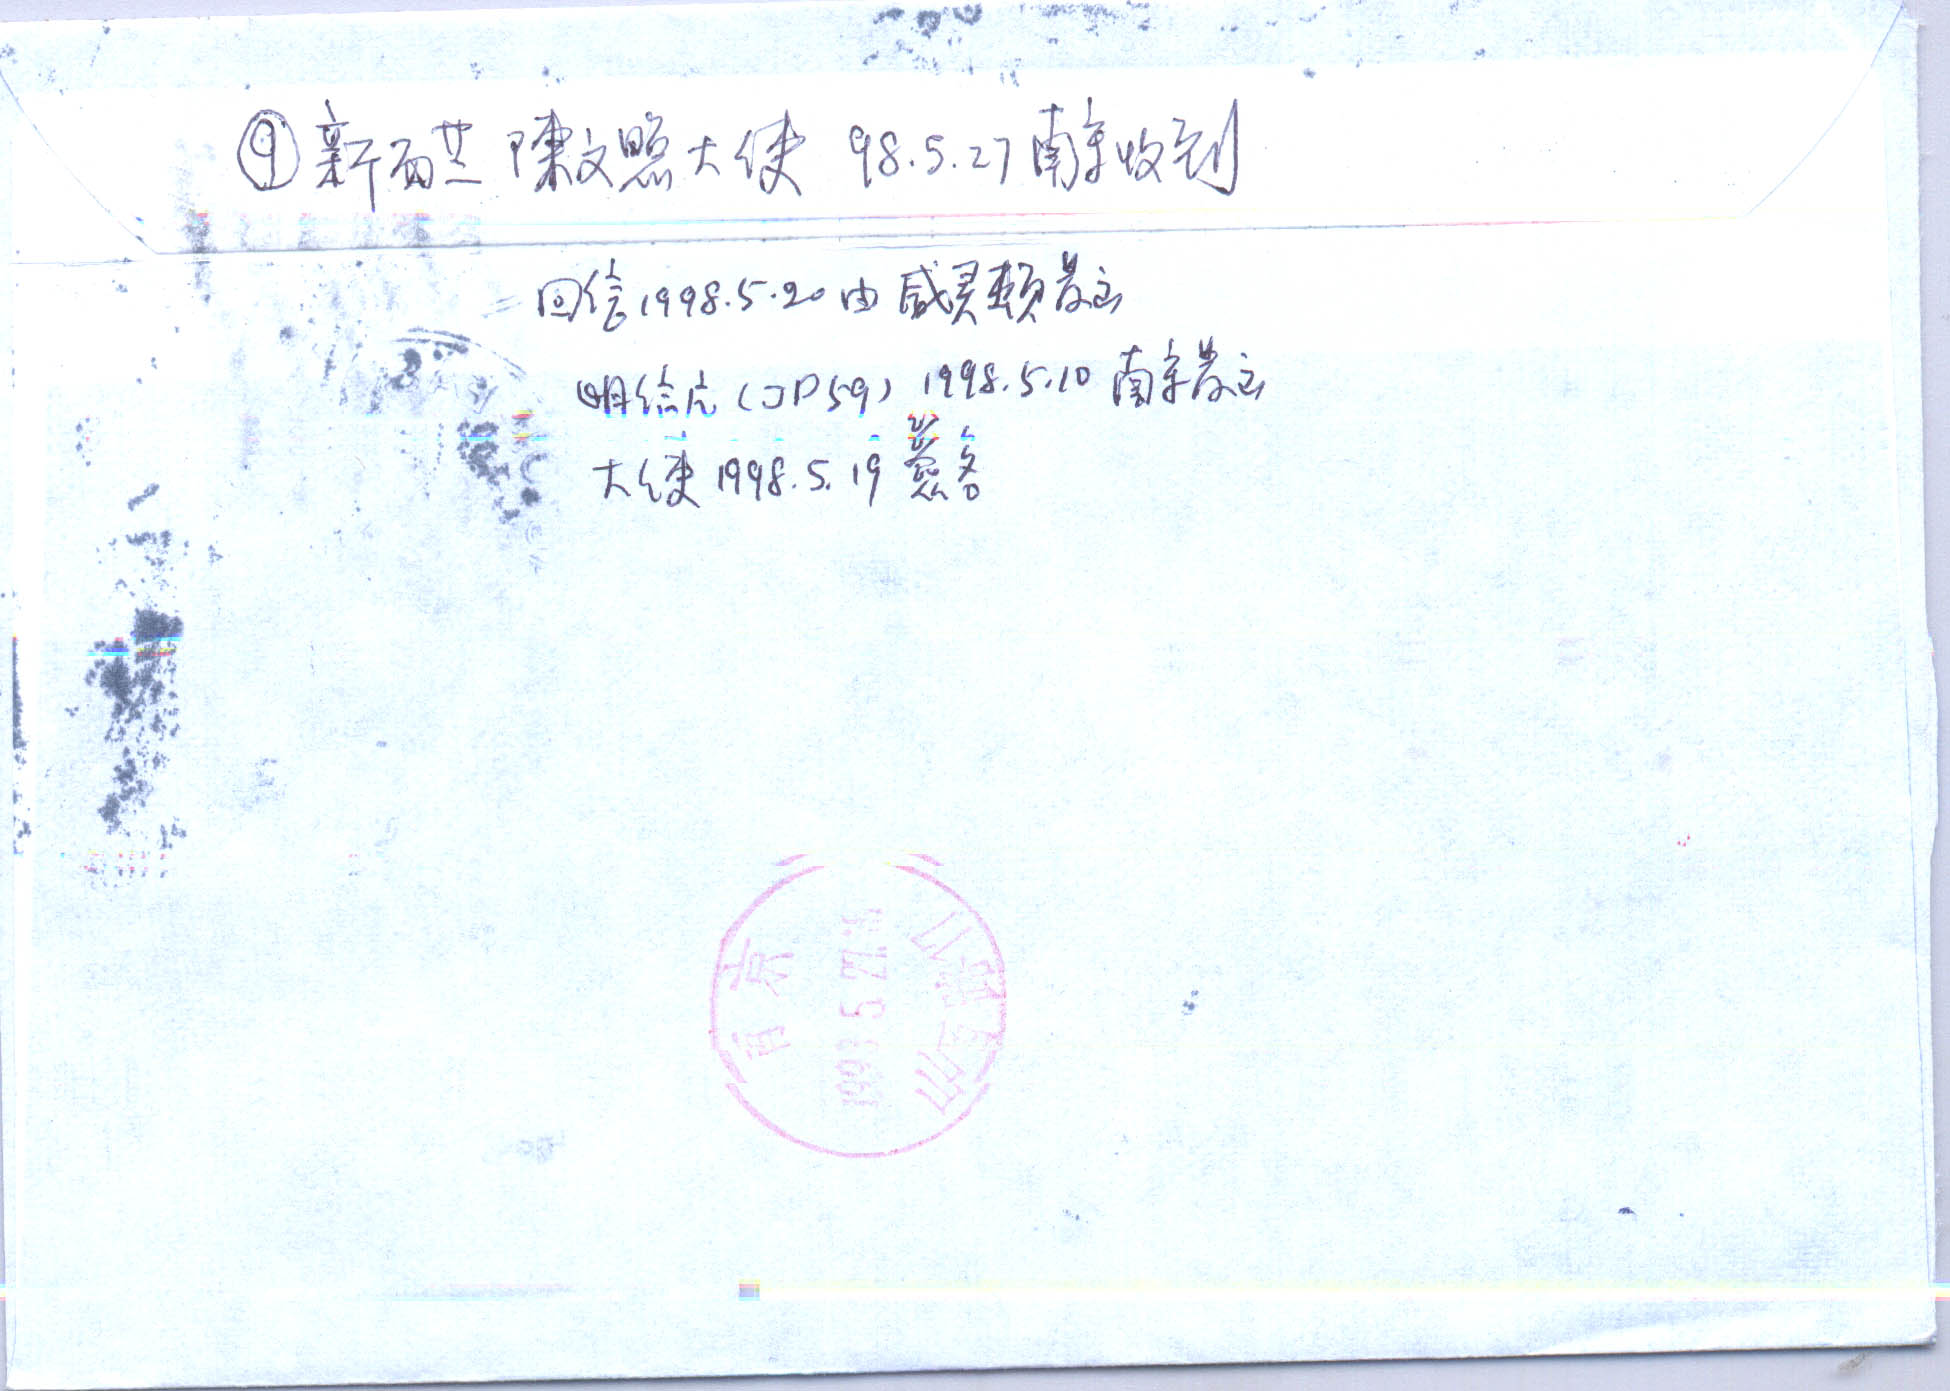 ⑨ 新西兰 陳文照大使 98.5.27 南京收到
回信 1998.5.20 由咸灵頓发出
明信片(JP59) 1998.5.10 南京发出
大使 1998.5.19 签名
南京
1998.5.27
山西路